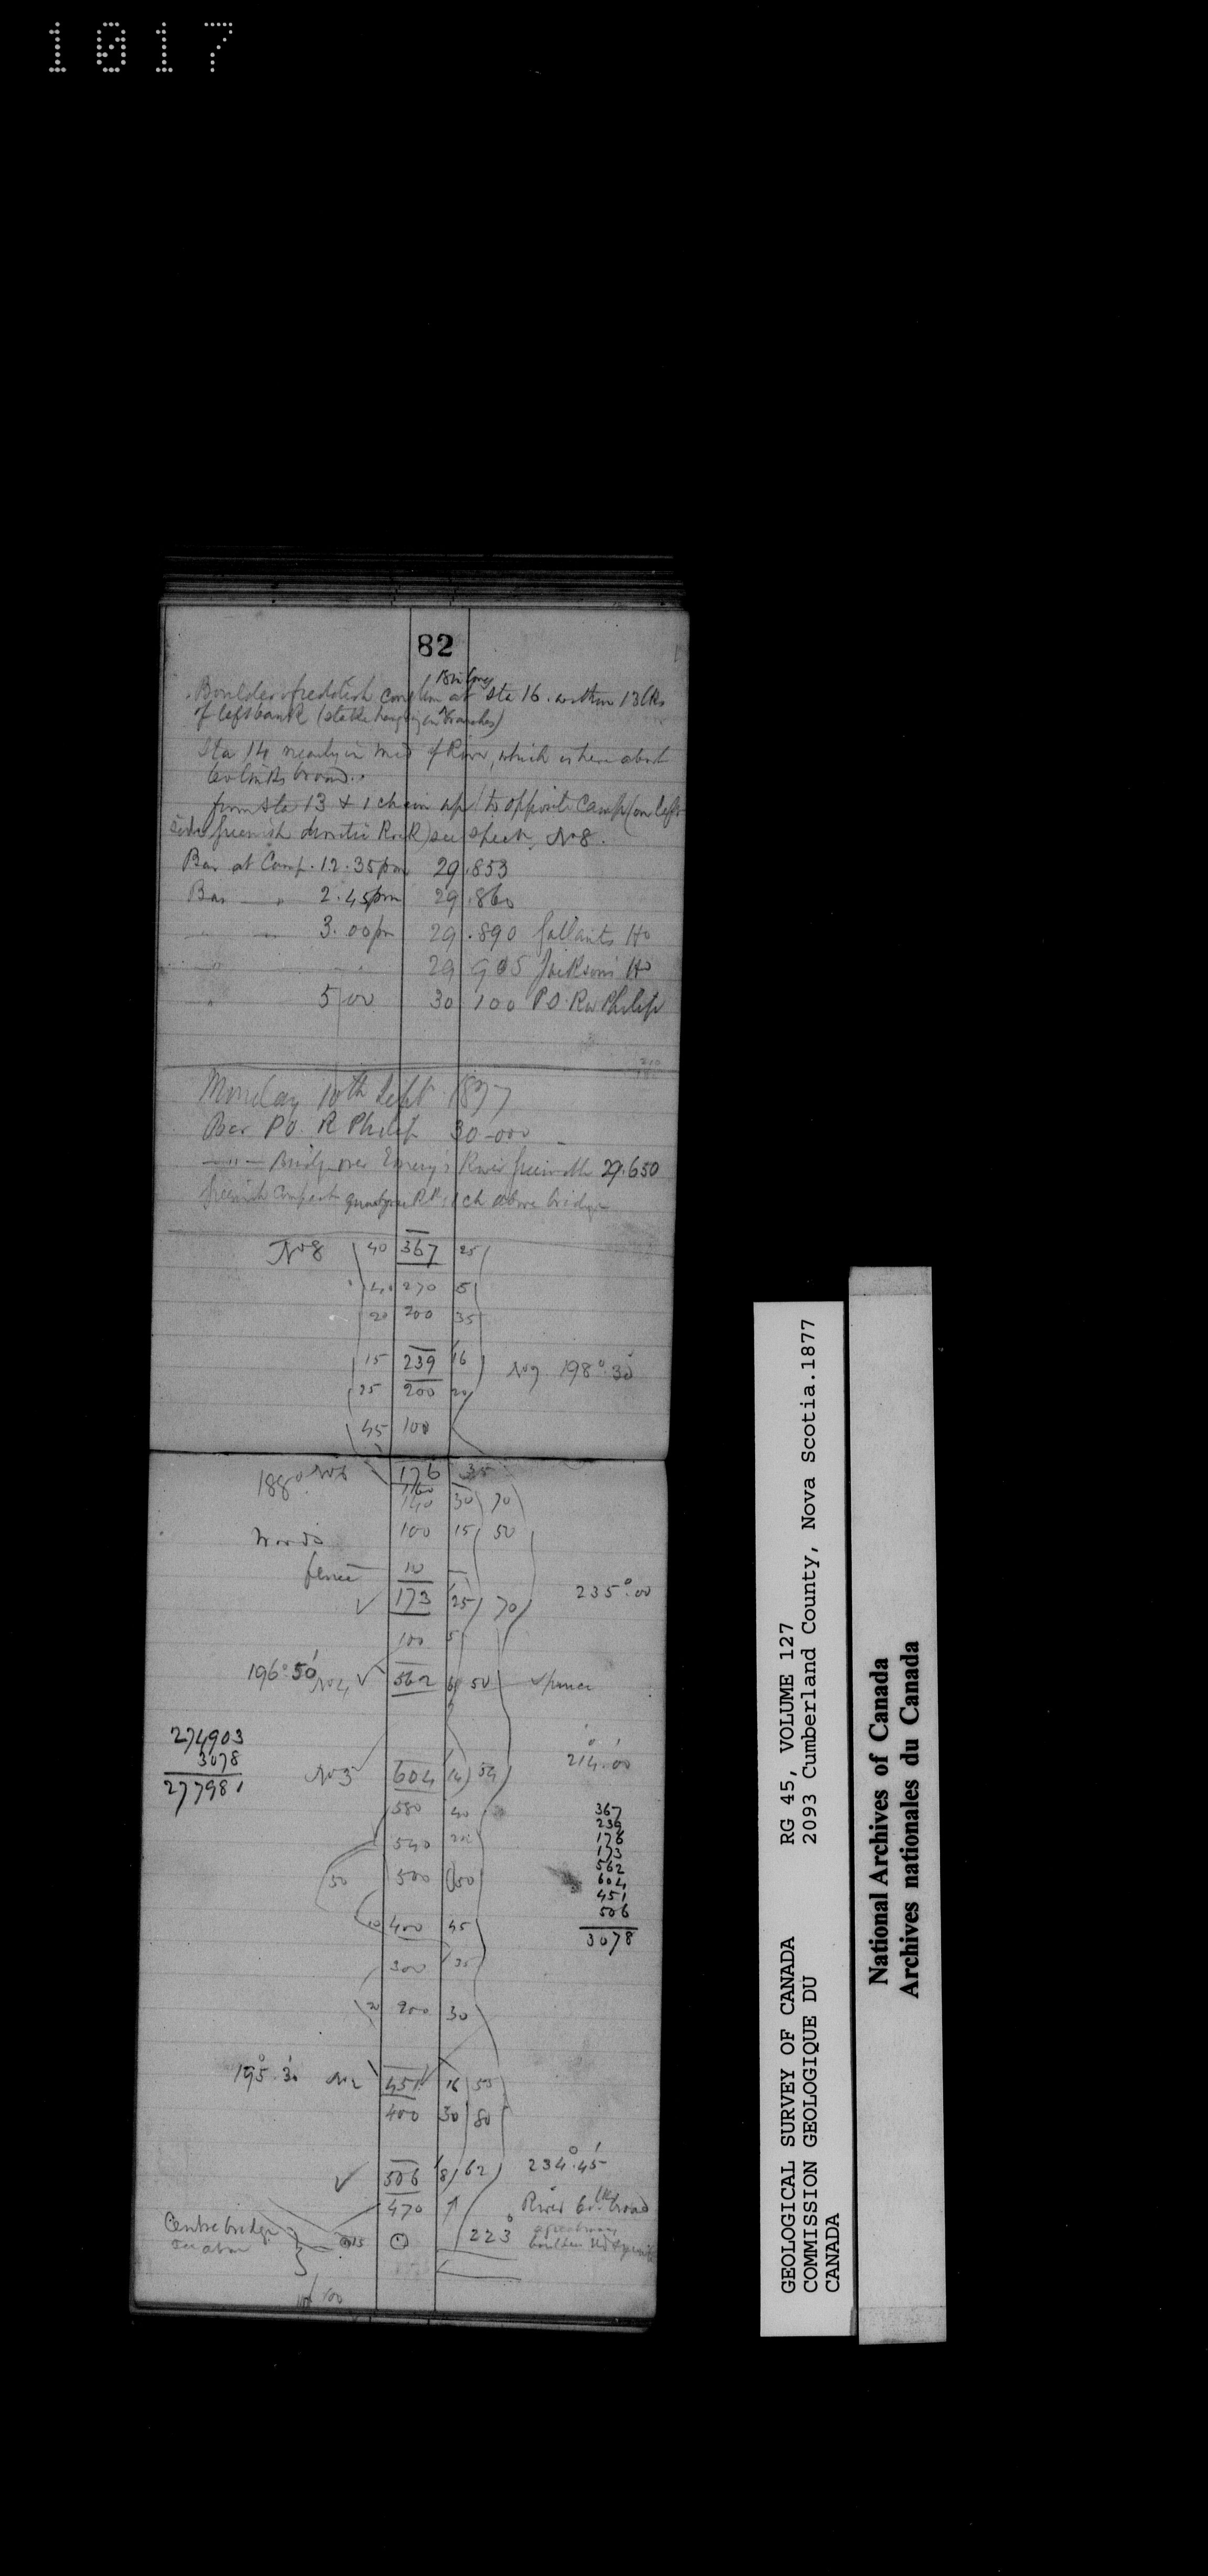 1017
82
Boulder of reddish conglom at Sta 16. within 13 lks
18 in long
of left bank (stake hanging in branches)
Sta 14 nearly in mid of River, which is here about
links broad..
from Sta 13 + 1 chain up to opposite Camp (on left
side greenish dioritic Rock) see Specn. No 8.
Bar at Camp. 12.35pm 29.853
Bar — " 2.45pm 29.860
" " 3.00pm 29.890 Gallants Ho
" " 29 905 Jacksons Ho
" 5 00 30 100 P.O. Rr Philip
Monday 10th Sept 1877
Bar P.O. R Philip 30.000
— " — Bridge over Emery's River 29.650
greenish compact RK, 1 ch above bridge
No 8 40 367 25
40 270 5
20 200 35
15 239 16 No 7 198°.30'
25 200 20
45 100
188° No 6 176 35
160
140 30 70
Woods 100 15 50
fence 10
173 25 70 235°.00
100 5
196°.50' No 4 562 6 50 Spruce
274903
3078
277981
No 3 604 14 54 214°.00'
580 40
540 20
50 500 50
10 400 45
300 35
20 200 30
367
239
176
173
562
604
451
506
3078
195°.30' No 2 451 16 55
400 30 80
506 8 62 234°.45'
470 River 60 lks broad
Centre bridge 15 223°
see above boulders
100
GEOLOGICAL SURVEY OF CANADA RG 45, VOLUME 127
COMMISSION GEOLOGIQUE DU 2093 Cumberland County, Nova Scotia.1877
CANADA
National Archives of Canada
Archives nationales du Canada